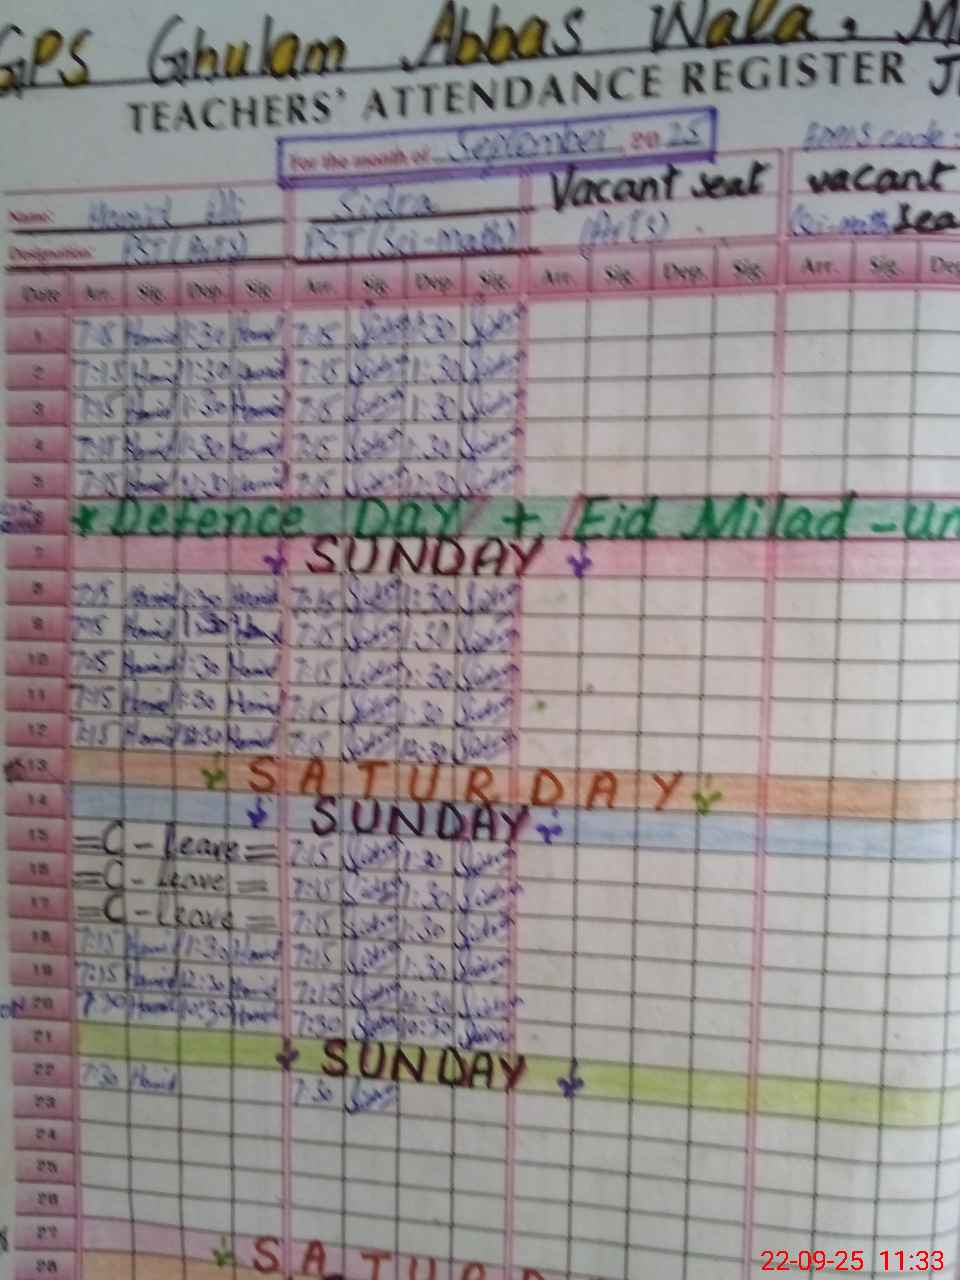 GPS Ghulam Abbas Wala. M
TEACHERS' ATTENDANCE REGISTER
For the month of September 2025
EMIS code
Name: Hamid Ali Sidra Vacant seat vacant
Designation: PST (Arts) PST (Sci-Math) (Arts) (Sci-math) Sea
Date Arr. Sig. Dep. Sig. Arr. Sig. Dep. Sig. Arr. Sig. Dep. Sig. Arr. Sig. Dep
1 7:15 Hamid 1:30 Hamid 7:15 Sidra 1:30 Sidra
2 7:15 Hamid 1:30 Hamid 7:15 Sidra 1:30 Sidra
3 7:15 Hamid 1:30 Hamid 7:15 Sidra 1:30 Sidra
4 7:15 Hamid 1:30 Hamid 7:15 Sidra 1:30 Sidra
5 7:15 Hamid 12:30 Hamid 7:15 Sidra 12:30 Sidra
6 * Defence DAY + Eid Milad -un
7 SUNDAY
8 7:15 Hamid 1:30 Hamid 7:15 Sidra 1:30 Sidra
9 7:15 Hamid 1:30 Hamid 7:15 Sidra 1:30 Sidra
10 7:15 Hamid 1:30 Hamid 7:15 Sidra 1:30 Sidra
11 7:15 Hamid 1:30 Hamid 7:15 Sidra 1:30 Sidra
12 7:15 Hamid 12:30 Hamid 7:15 Sidra 12:30 Sidra
13 SATURDAY
14 SUNDAY
15 =C-Leave= 7:15 Sidra 1:30 Sidra
16 =C-Leave= 7:15 Sidra 1:30 Sidra
17 =C-Leave= 7:15 Sidra 1:30 Sidra
18 7:15 Hamid 1:30 Hamid 7:15 Sidra 1:30 Sidra
19 7:15 Hamid 12:30 Hamid 7:15 Sidra 12:30 Sidra
20 7:30 Hamid 10:30 Hamid 7:30 Sidra 10:30 Sidra
21 SUNDAY
22 7:30 Hamid 7:30 Sidra
23
24
25
26
27 SATURD
28
22-09-25 11:33